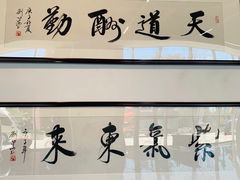 天道酬勤
紫氣東来